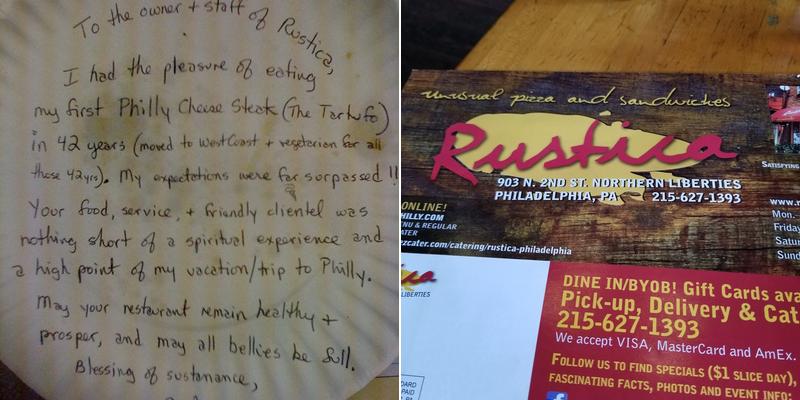 To the owner + staff of Rustica,
I had the pleasure of eating
my first Philly Cheese Steak (The Tartufo)
in 42 years (moved to West Coast + vegetarian for all
those 42yrs). My expectations were far surpassed!!
Your food, service, + friendly clientel was
nothing short of a spiritual experience and
a high point of my vacation/trip to Philly.
May your restaurant remain healthy +
prosper, and may all bellies be full.
Blessing of sustanance,
unusual pizza and sandwiches
Rustica
903 N. 2ND ST. NORTHERN LIBERTIES
PHILADELPHIA, PA 215-627-1393
ONLINE!
HILLY.COM
ENU & REGULAR
ATER
ezcater.com/catering/rustica-philadelphia
SATISFYING
www.r
Mon. -
Friday
Satur
Sund
LIBERTIES
DINE IN/BYOB! Gift Cards ava
Pick-up, Delivery & Cat
215-627-1393
We accept VISA, MasterCard and AmEx.
FOLLOW US TO FIND SPECIALS ($1 SLICE DAY),
FASCINATING FACTS, PHOTOS AND EVENT INFO: